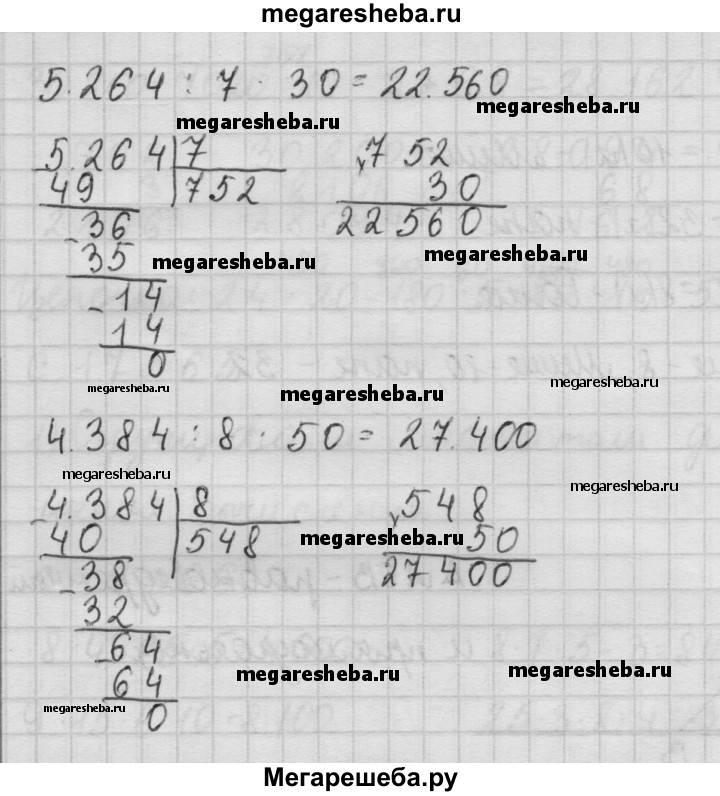 megaresheba.ru
5.264 : 7 · 30 = 22.560
megaresheba.ru
megaresheba.ru
5.264 7
49 752
36
35
14
14
0
752
30
22560
megaresheba.ru
megaresheba.ru
megaresheba.ru
megaresheba.ru
megaresheba.ru
4.384 : 8 · 50 = 27.400
megaresheba.ru
megaresheba.ru
4.384 8
40 548
38
32
64
64
0
548
50
27400
megaresheba.ru
megaresheba.ru
megaresheba.ru
megaresheba.ru
Мегарешеба.ру